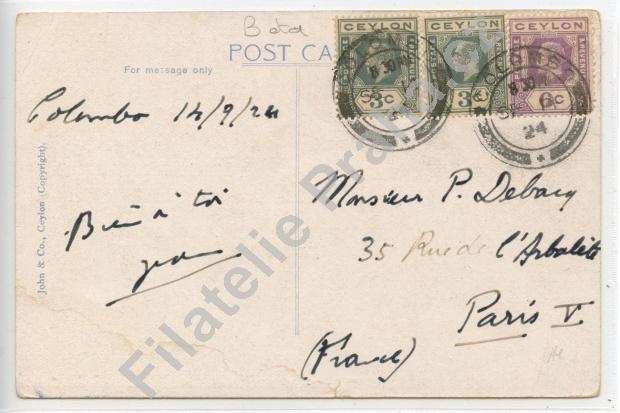 Bata
POST CA
For message only
CEYLON
CEYLON
CEYLON
3c
3c
6c
COLOMBO
8 30
24
Colombo 14/9/24
Bien à toi
Jean
Monsieur P. Debacq
35 Rue de l'Arbalète
Paris V
(France)
John & Co., Ceylon (Copyright).
Filatelie Praha